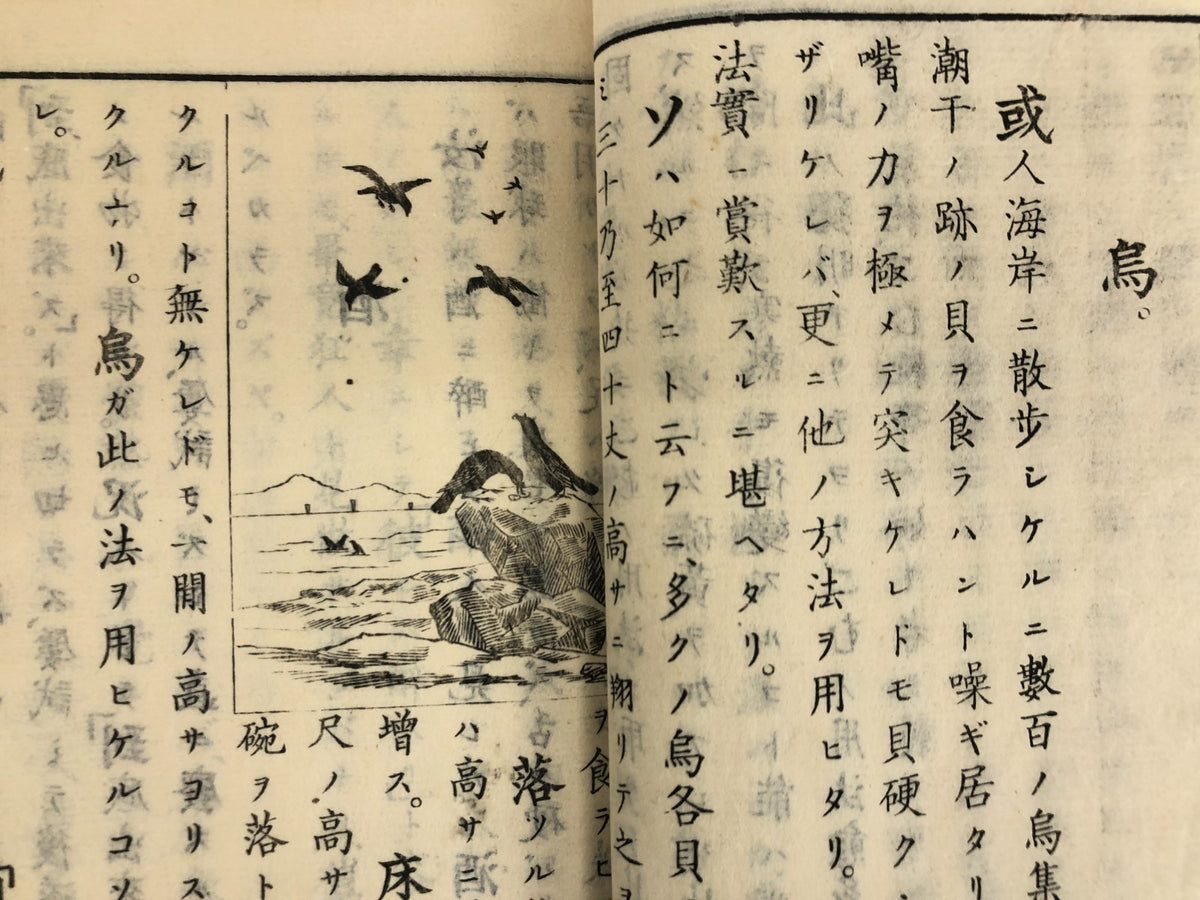 烏。
或人海岸ニ散歩シケルニ數百ノ烏集
潮干ノ跡ノ貝ヲ食ラハント噪ギ居タリ
嘴ノ力ヲ極メテ突キケレドモ貝硬ク
ザリケレバ、更ニ他ノ方法ヲ用ヒタリ。
法實ニ賞歎スルニ堪ヘタリ。
ソハ如何ニト云フニ、多クノ烏各貝
三十乃至四十丈ノ高サニ翔リテ之ヲ
ヲ食ラヒ
落ツル
ハ高サニ
增ス。 床
尺ノ高サ
碗ヲ落ト
クルコト無ケレドモ、一間ノ高サヨリス
クル六リ。 烏ガ此ノ法ヲ用ヒケルコソ
レ。